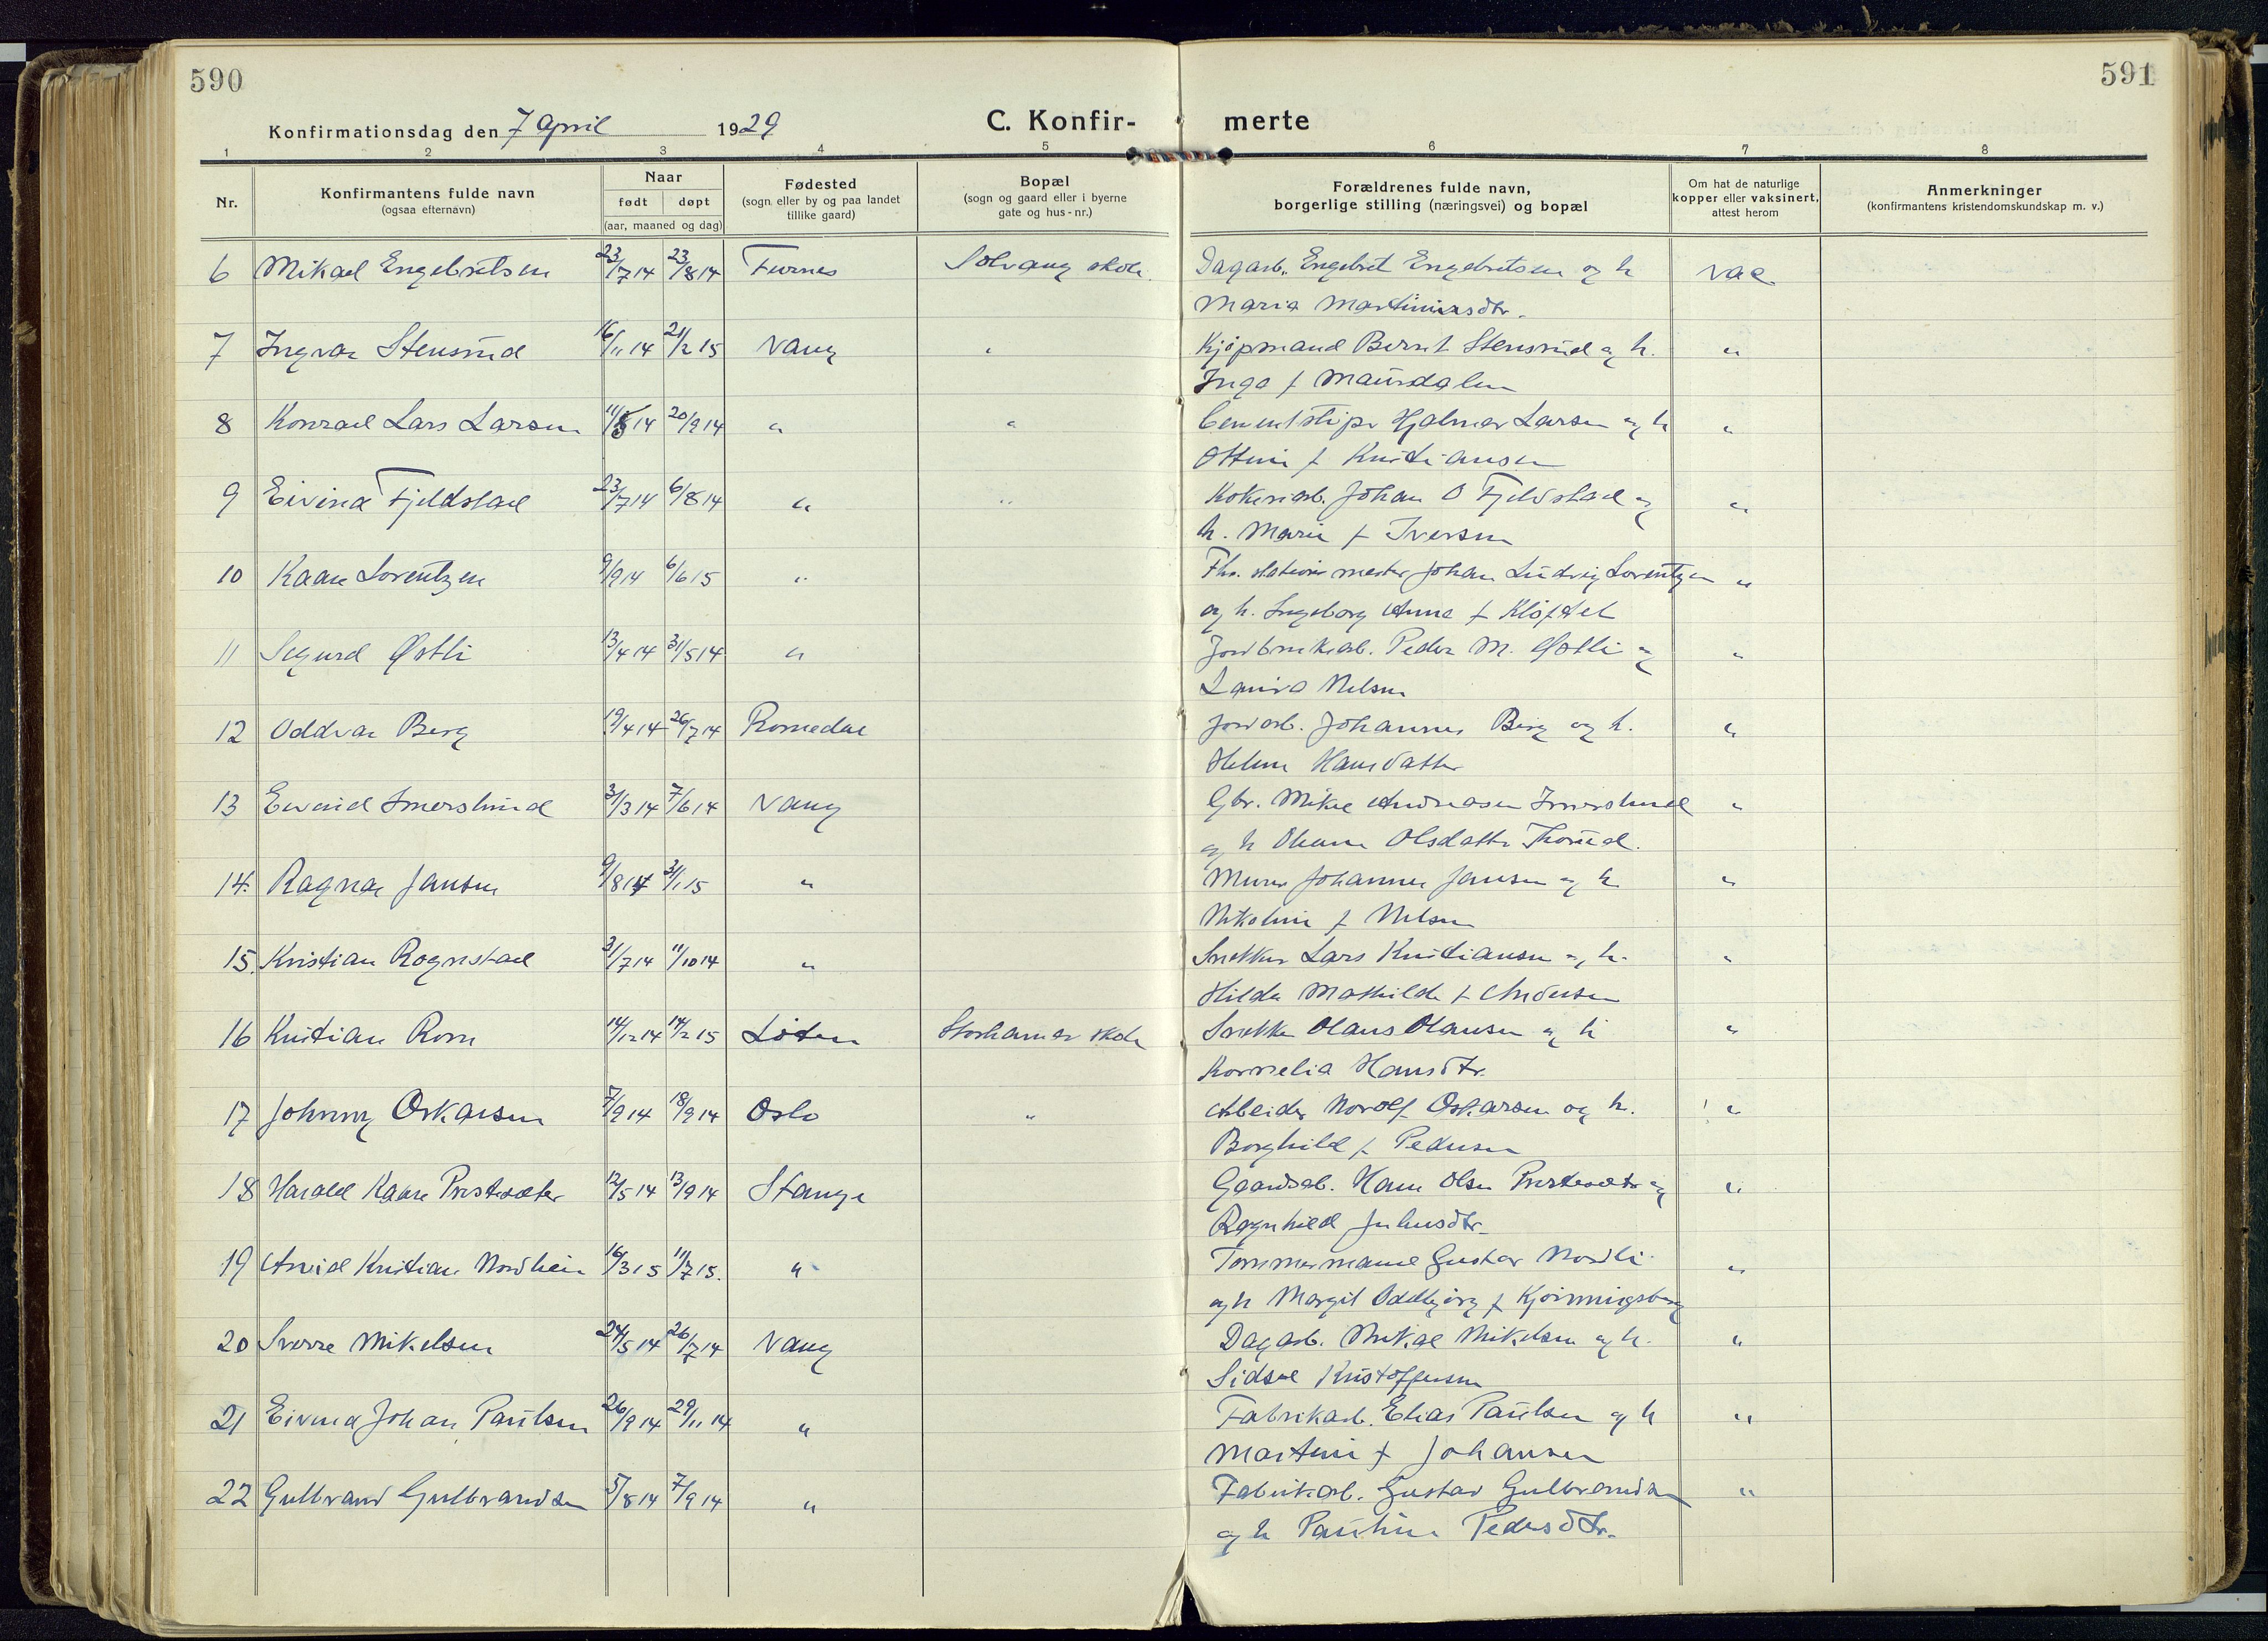 590
591
Konfirmationsdag den 7 April 1929
C. Konfir-
merte
1 2 3 4 5 6 7 8
Nr.
Konfirmantens fulde navn
(ogsaa efternavn)
Naar
født døpt
(aar, maaned og dag)
Fødested
(sogn eller by og paa landet
tillike gaard)
Bopæl
(sogn og gaard eller i byerne
gate og hus-nr.)
Forældrenes fulde navn,
borgerlige stilling (næringsvei) og bopæl
Om hat de naturlige
kopper eller vaksinert,
attest herom
Anmerkninger
(konfirmantens kristendomskundskap m. v.)
6 Mikael Engebretsen 23/7 14 23/8 14 Furnes Solvang skole. Dagarb. Engebret Engebretsen og h vac
Maria Martiniusdtr.
7 Ingvar Stensrud 16/11 14 21/2 15 Vang " Kjøpmand Bernt Stensrud og h. "
Inga f Maursdalen
8 Konrad Lars Larsen 11/8 14 20/9 14 " " Cementstøper Hjalmar Larsen og h "
Ottine f Kristiansen
9 Eivind Fjeldstad 23/7 14 6/8 14 " " Kokeriarb. Johan O Fjeldstad og "
h. Marie f Iversen
10 Kaare Lorentzen 9/9 14 6/6 15 " Fhv. stationsmester Johan Ludvig Lorentzen "
og h. Ingeborg Anna f Kløftet
11 Sigurd Østli 13/4 14 31/5 14 " Jordbruksarb. Peder M. Østli og "
Laura Nilsen
12 Oddvar Berg 19/4 14 26/7 14 Romedal Jordarb. Johannes Berg og h. "
Helene Hansdatter
13 Eivind Imerslund 31/3 14 7/6 14 Vang Gbr. Mikal Andreasen Imerslund "
og h Oluma Olsdatter Thorud.
14. Ragnar Jansen 9/8 14 31/1 15 " Murer Johannes Jansen og h. "
Nikoline f Nilsen
15. Kristian Rognstad 31/7 14 11/10 14 " Snekker Lars Kristiansen og h. "
Hilda Mathilde f Andersen
16 Kristian Rom 14/12 14 14/2 15 Løten Storhamar skole Snekker Olaus Olausen og h "
Kornelia Hansdtr.
17 Johnny Oskarsen 7/9 14 18/9 14 Oslo " Arbeider Norolf Oskarsen og h. "
Borghild f Pedersen
18 Harald Kaare Prestesæter 12/5 14 13/9 14 Stange Gaardsarb. Hans Olsen Prestesæter og "
Ragnhild Juliusdtr.
19 Arvid Kristian Nordheim 16/3 15 11/7 15. " Tømmermand Gustav Nordli "
og h Margit Oddbjørg f Kjønnigsberg
20 Sverre Mikelsen 24/5 14 26/7 14 Vang Dagarb. Mikal Mikelsen og h. "
Sidsel Kristoffersen
21 Eivind Johan Paulsen 26/9 14 29/11 14 " Fabrikarb. Elias Paulsen og h "
Martine f Johansen
22 Gulbrand Gulbrandsen 5/8 14 7/9 14 " Fabrikarb. Gustav Gulbrandsen "
og h Pauline Pedersdtr.